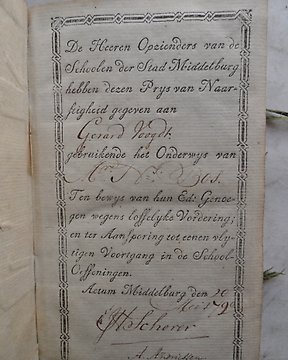 De Heeren Opzienders van de
Schoolen der Stad Middelburg
hebben dezen Prys van Naar-
stigheid gegeven aan
Gerard Voogdt.
gebruikende het Onderwys van
Ten bewys van hun Ed: Genoe-
gen wegens loffelyke Vordering;
en ter Aansporing tot eenen vly-
tigen Voortgang in de School-
Oeffeningen.
Actum Middelburg den 20
Scherer